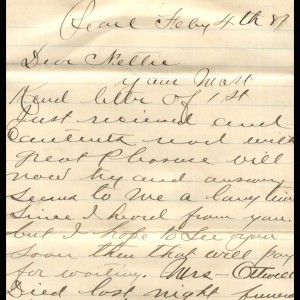 Pearl Feby 4th 87
Dear Nellie
your Most
Kind letter of 1st
Just recieved and
Contents noted with
great Pleasure will
now try and answer
seems to Me a long time
since I heard from you.
but I hope to See you
soon then that will pay
for waiting. Mrs- Ottwell
Died last night funeral